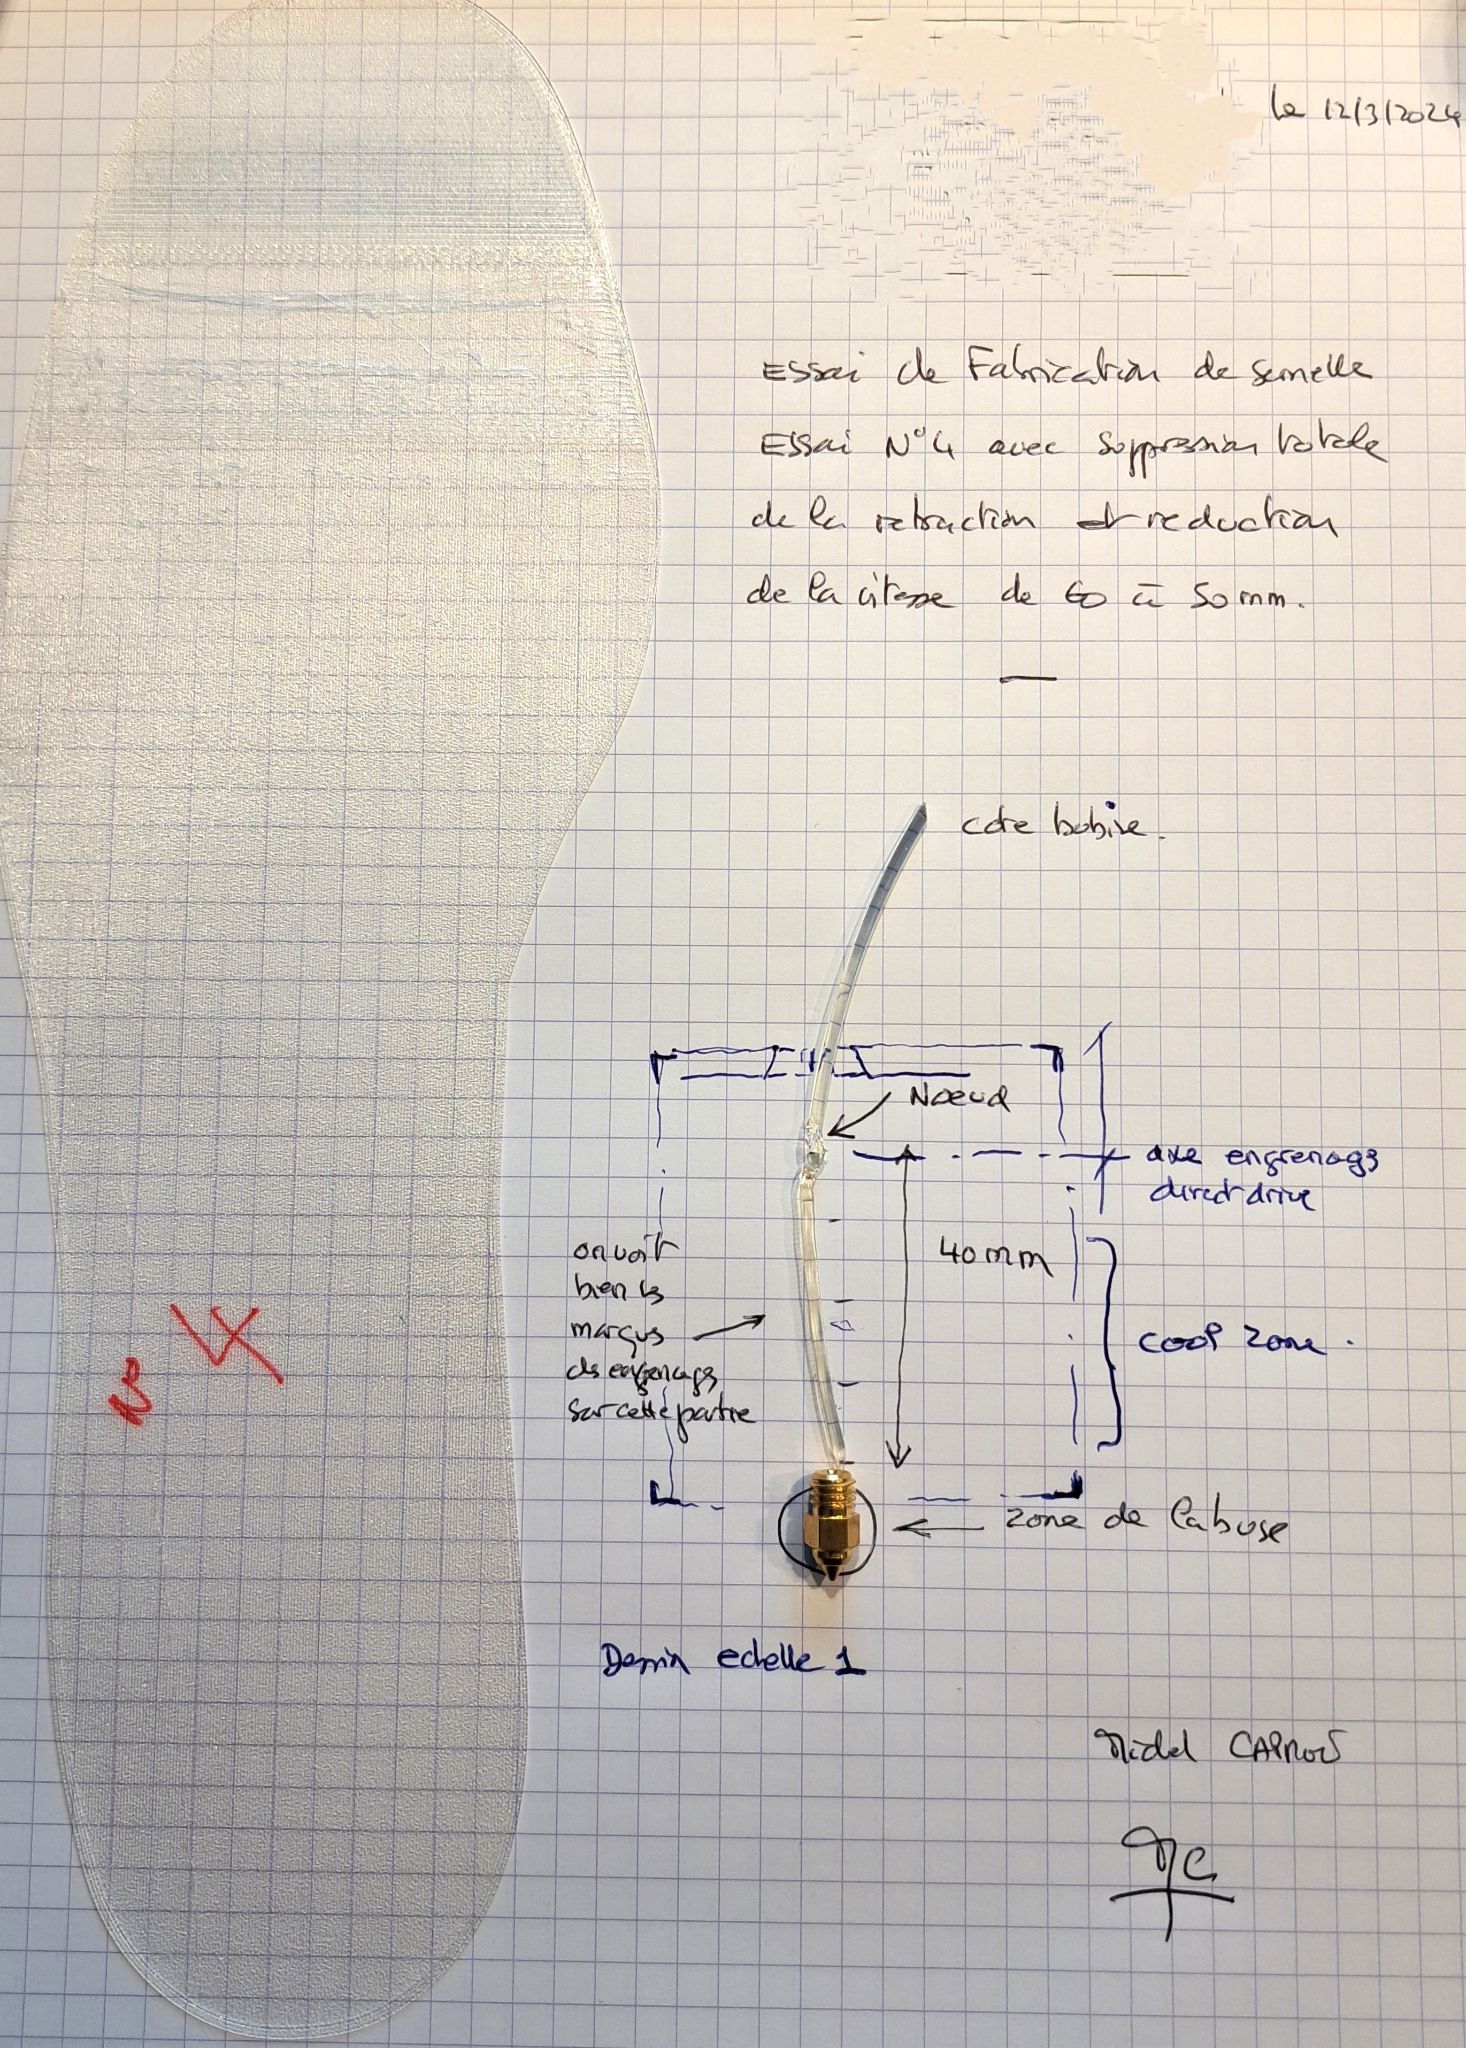 le 12/3/2024
Essai de Fabrication de semelle
Essai N°4 avec suppression totale
de la retraction et reduction
de la vitesse de 60 à 50mm.
coté bobine.
Noeud
axe engrenages
direct drive
on voit
bien les
marques
des engrenages
sur cette partie
40mm
cool zone.
N° 4
zone de la buse
Dessin echelle 1
Michel
MC